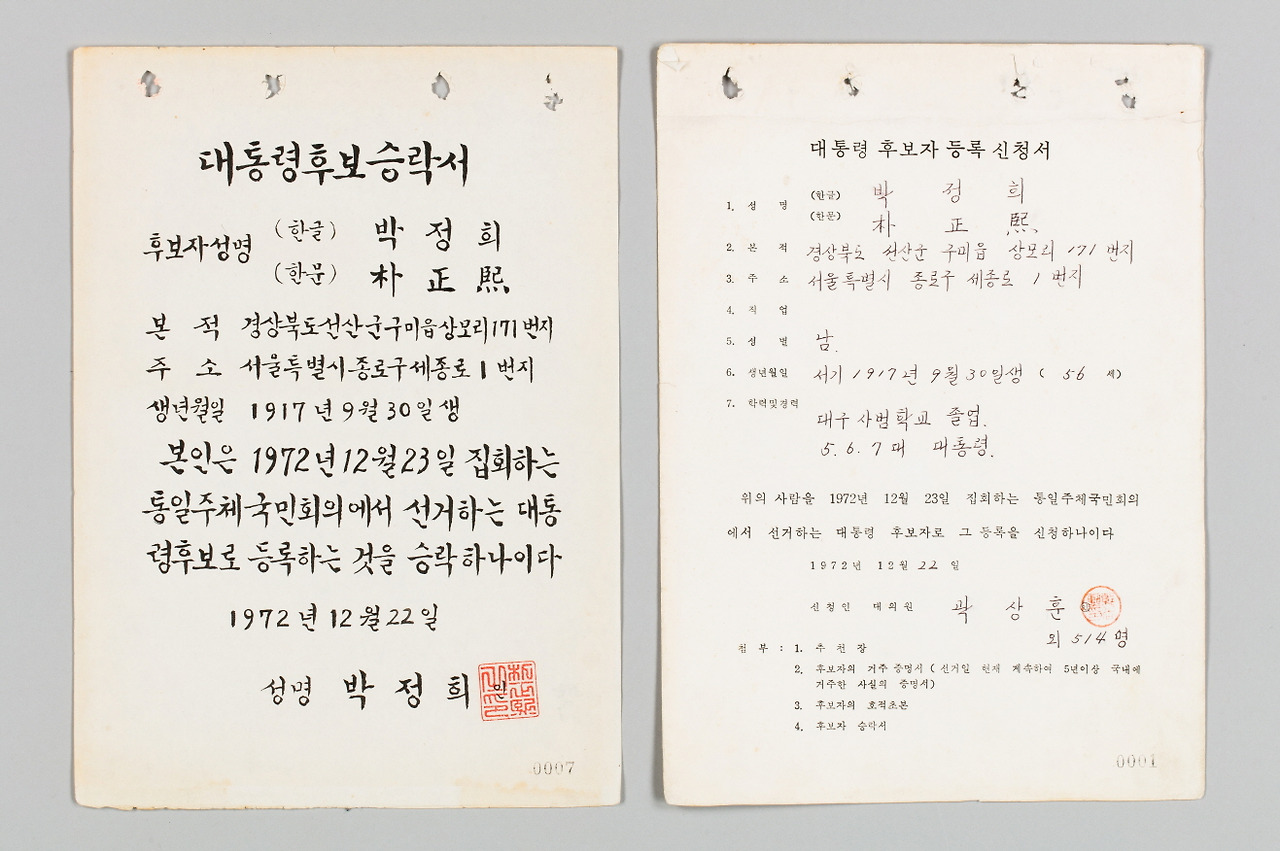 대통령후보승락서
후보자성명 (한글) 박 정 희
(한문) 朴 正 熙
본 적 경상북도선산군구미읍상모리171번지
주 소 서울특별시종로구세종로 1 번지
생년월일 1917년 9월 30일생
본인은 1972년 12월 23일 집회하는
통일주체국민회의에서 선거하는 대통
령후보로 등록하는 것을 승락하나이다
1972년 12월 22일
성명 박 정 희 인
0007
대통령 후보자 등록 신청서
1. 성 명 (한글) 박 정 희
(한문) 朴 正 熙
2. 본 적 경상북도 선산군 구미읍 상모리 171 번지
3. 주 소 서울특별시 종로구 세종로 1 번지
4. 직 업
5. 성 별 남.
6. 생년월일 서기 1917년 9월 30일생 ( 56 세)
7. 학력및경력
대구 사범학교 졸업.
5. 6. 7 대 대통령.
위의 사람을 1972년 12월 23일 집회하는 통일주체국민회의
에서 선거하는 대통령 후보자로 그 등록을 신청하나이다
1972년 12월 22 일
신청인 대의원 곽 상 훈
외 514명
첨 부 : 1. 추 천 장
2. 후보자의 거주 증명서 ( 선거일 현재 계속하여 5년이상 국내에
거주한 사실의 증명서)
3. 후보자의 호적초본
4. 후보자 승락서
0001